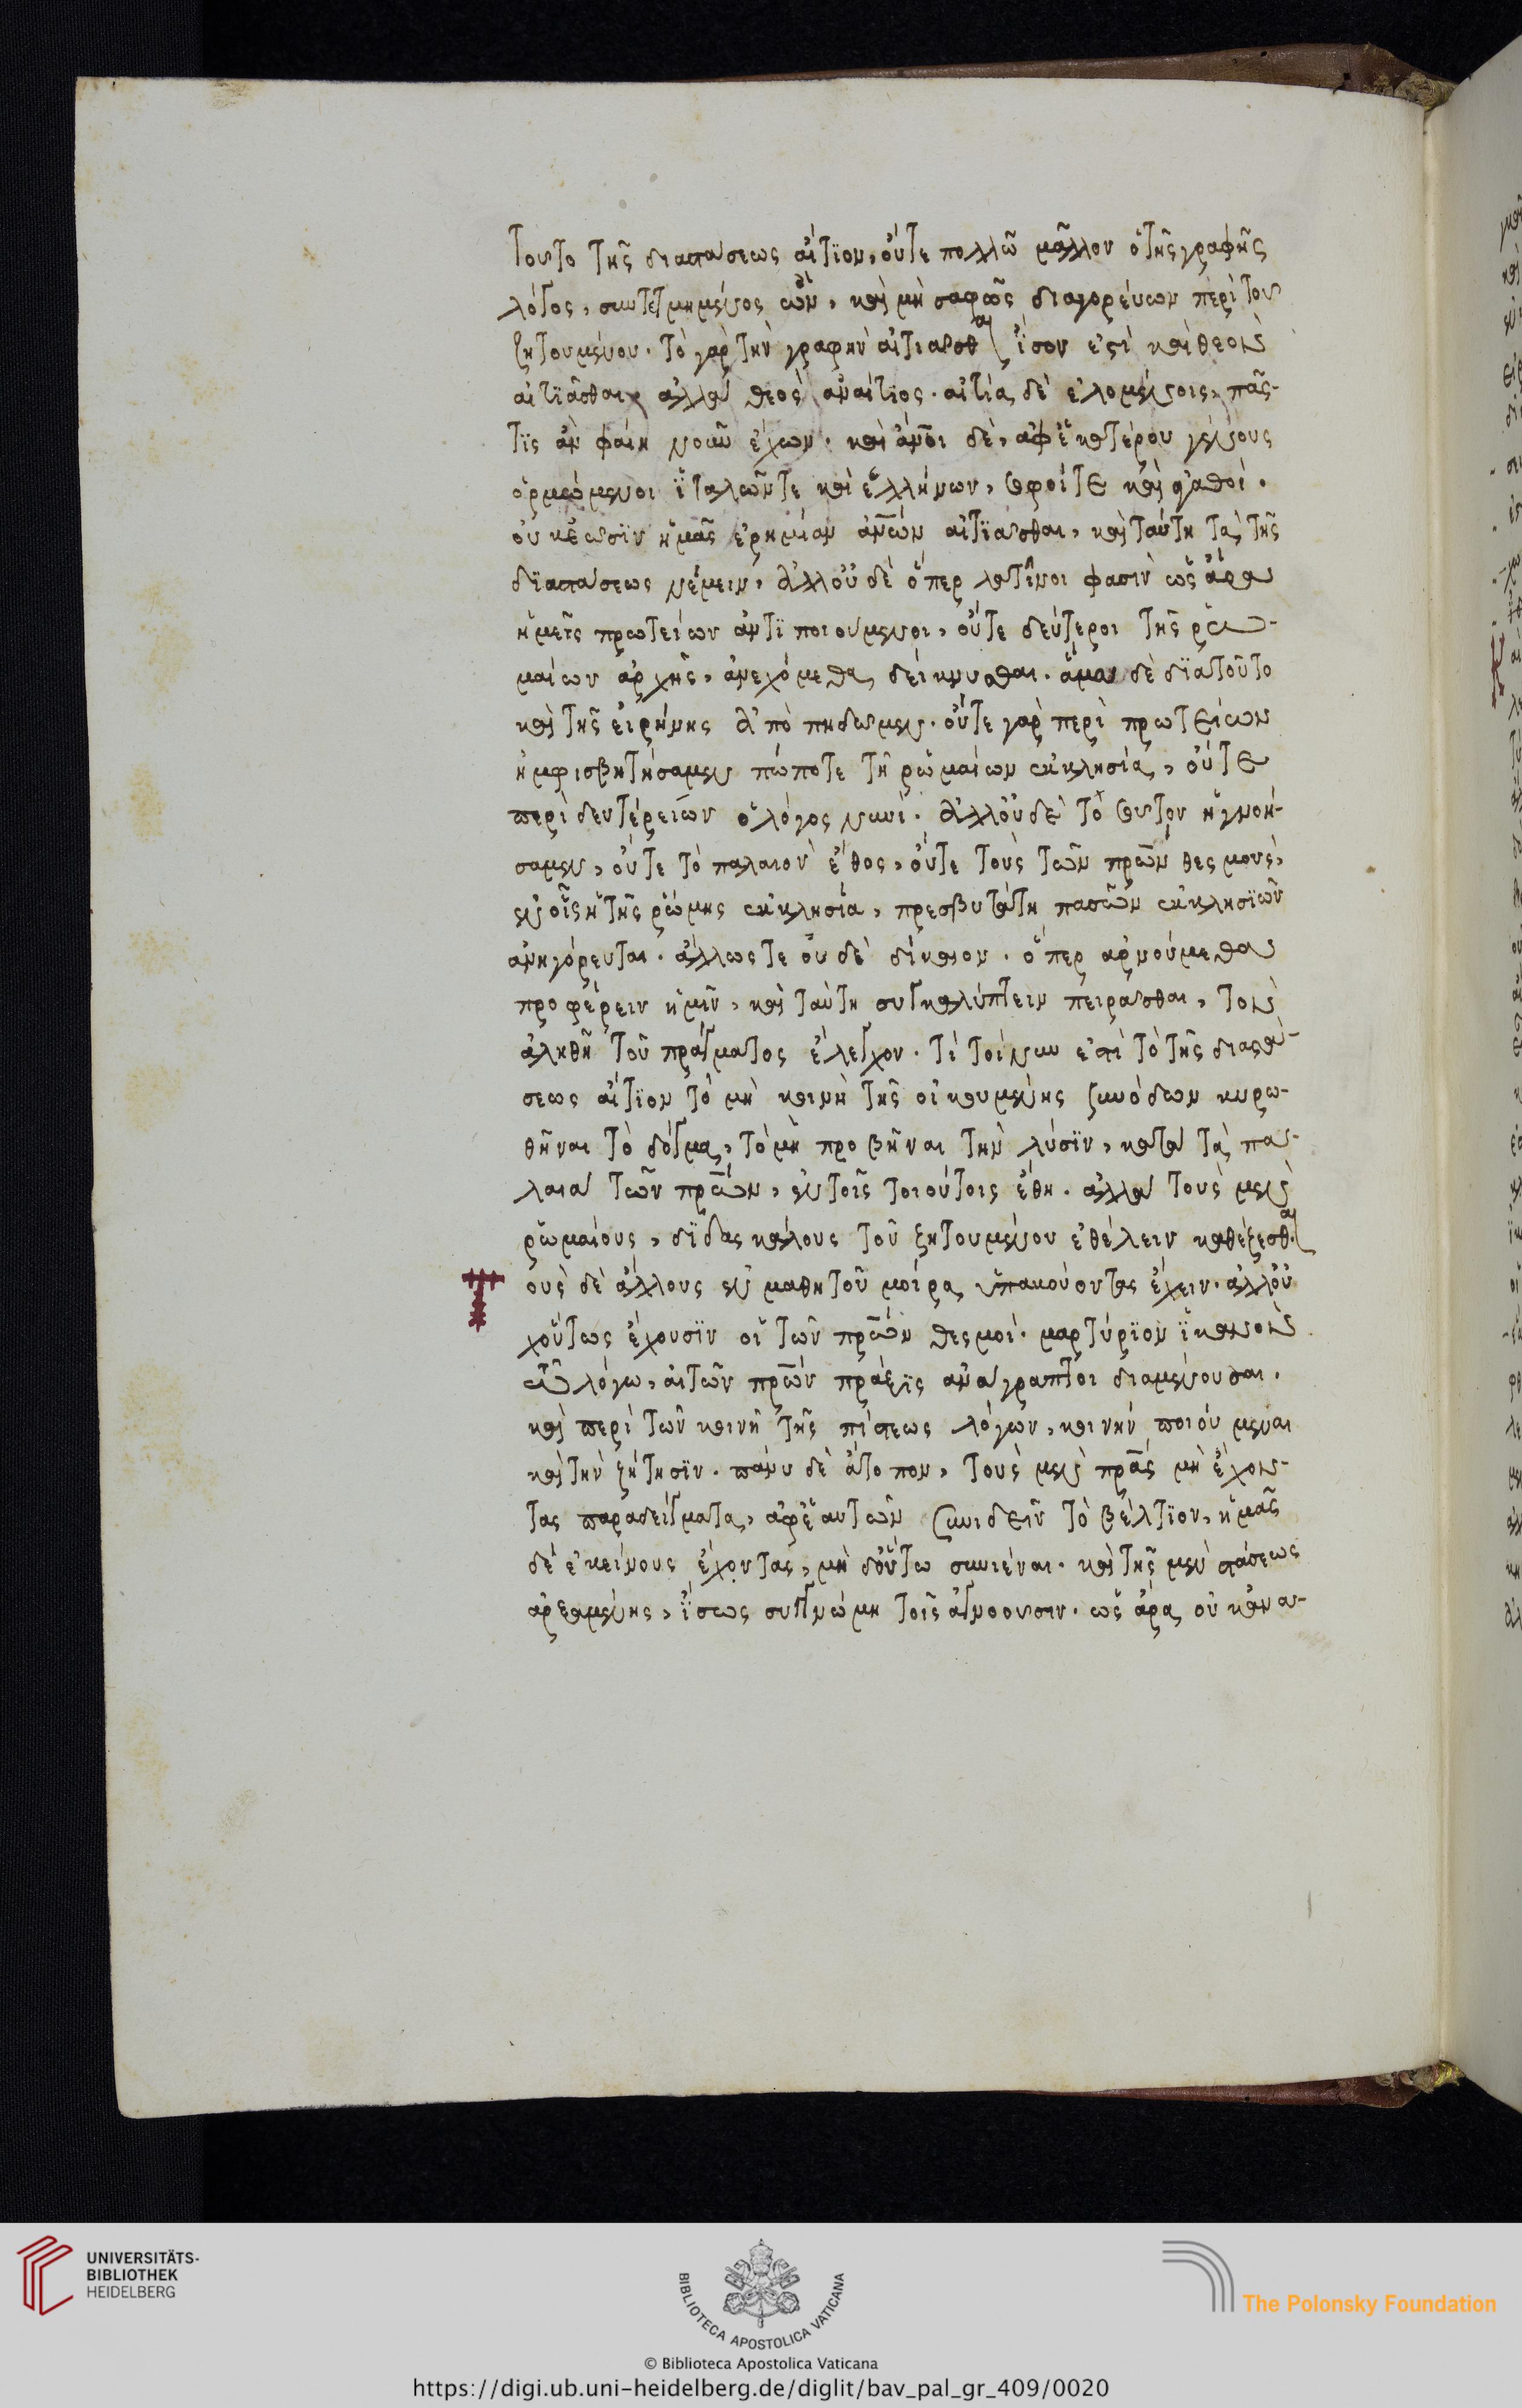 τουτο τῆς διαστάσεως αἴτϊον, οὔτε πολλῶ μᾶλλον ὁ τῆς γραφῆς
λόγος, συντετμημένος ὢν, καὶ μὴ σαφῶς διαγορεύων περὶ του
ζητουμένου. τὸ γὰρ τὴν γραφὴν αἰτιᾶσθαι ἴσον ἐστὶ καὶ θεὸν
αἰτϊᾶσθαι, ἀλλὰ θεὸς ἀναίτϊος. αἰτία δὲ ἑλομένοις, πᾶς
τϊς ἂν φαίη νοῦν ἔχων. καὶ ἄνοι δὲ, ἀφ ἑκατέρου γένους
ὁρμώμενοι ϊταλῶν τε καὶ ἑλλήνων, σοφοί τε καὶ ἀγαθοί.
οὐκ ἐῶσϊν ἡμᾶς ἐρημίαν ἀνῶν αἰτϊᾶσθαι, καὶ ταύτη τὰ τῆς
δϊαστάσεως νέμειν, ἀλλ οὐδὲ ὅπερ λατῖνοι φασὶν ὡς ἄρα
ἡμεῖς πρωτείων ἀντϊποιούμενοι, οὔτε δεύτεροι τῆς ῥω-
μαίων ἀρχῆς, ἀνεχόμεθα δείκνυσθαι. ἅμα δὲ δϊατοῦτο
καὶ τῆς εἰρήνης ἀποπηδῶμεν. οὔτε γὰρ περὶ πρωτείων
ἠμφισβητήσαμεν πώποτε τῆ ῥωμαίων ἐκκλησία, οὔτε
περὶ δευτερείων ὁ λόγος νυνί. ἀλλ οὐδὲ τὸ τουτον ἠγνοή-
σαμεν, οὔτε τὸ παλαιὸν ἔθος, οὔτε τοὺς τῶν πρων θεσμοὺς,
ἐν οἷς ἡ τῆς ῥώμης ἐκκλησία, πρεσβυτάτη πασῶν ἐκκλησϊῶν
ἀνηγόρευται. ἄλλωστε οὐδὲ δίκαιον. ὅπερ ἀρνούμεθα
προφέρειν ἡμῖν, καὶ ταύτη συγκαλύπτειν πειρᾶσθαι, τὸν
ἀληθῆ τοῦ πράγματος ἔλεγχον. τί τοίνυν ἐστὶ τὸ τῆς διαστά-
σεως αἴτϊον τὸ μὴ κοινῆ τῆς οἰκουμένης συνόδων κυρω-
θῆναι τὸ δόγμα, τὸ μὴ προβῆναι τὴν λύσϊν, κατὰ τὰ πα-
λαιὰ τῶν πρων, ἐν τοῖς τοιούτοις ἔθη. ἀλλὰ τοὺς μὲν
ῥωμαίους, διδασκάλους τοῦ ζητουμένου ἐθέλειν καθέζεσθαι
τοὺς δὲ ἄλλους ἐν μαθητοῦ μοίρα ὑπακούοντας ἔχειν. ἀλλ οὐ
χοὕτως ἔχουσϊν οἱ τῶν πρων θεσμοί. μαρτύρϊον ϊκανὸν
τῶ λόγω, αἱ τῶν πρων πράξϊς ἀνάγραπτοι διαμένουσαι.
καὶ περὶ τῶν κοινῆ τῆς πίστεως λόγων, κοινὴν ποιούμεναι
καὶ τὴν ζήτησϊν. πάνυ δὲ ἄτοπον, τοὺς μὲν πρας μὴ ἔχον-
τας παραδείγματα, ἀφ ἑαυτῶν συνιδεῖν τὸ βέλτϊον, ἡμᾶς
δὲ ἐκείνους ἔχοντας, μὴ δ οὕτω συνιέναι. καὶ τῆς μὲν στάσεως
ἀρξαμένης, ἴσως συγγνώμη τοῖς ἀγνοουσιν. ὡς ἄρα οὐ κἀνα-
UNIVERSITÄTS-
BIBLIOTHEK
HEIDELBERG
BIBLIOTECA APOSTOLICA VATICANA
The Polonsky Foundation
© Biblioteca Apostolica Vaticana
https://digi.ub.uni-heidelberg.de/diglit/bav_pal_gr_409/0020